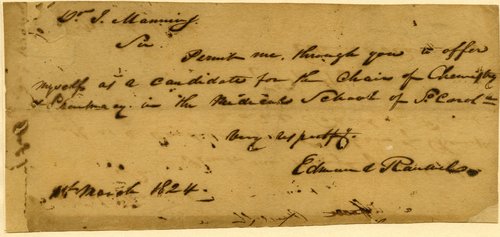 Dr. J. Manning.
Sir
Permit me, through you to offer
myself as a candidate for the Chair of Chemistry
& Pharmacy in the Medical School of So Carolna
Very respectfy.
Edmund Ravenel
March 1824.